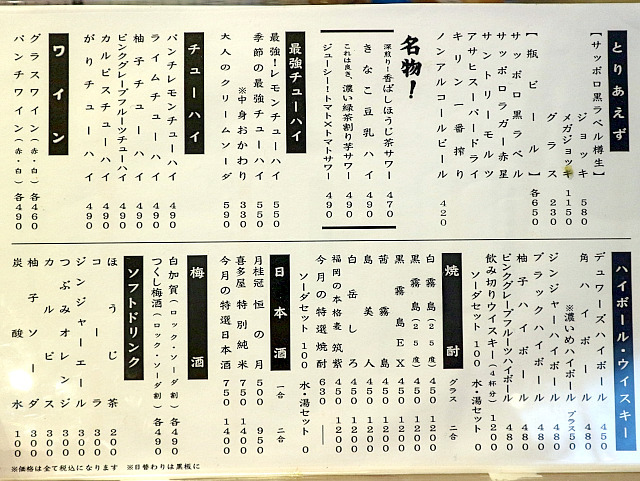 とりあえず
【サッポロ黒ラベル樽生】
ジョッキ 580
メガジョッキ 1150
グラス 230
【瓶ビール】各650
サッポロ黒ラベル
サッポロラガー赤星
サントリーモルツ
アサヒスーパードライ
キリン一番搾り
ノンアルコールビール 420
名物！
深煎り！香ばしほうじ茶サワー 470
きなこ豆乳ハイ 490
これは良き、濃い緑茶割り芋サワー 490
ジューシー！トマト×トマトサワー 490
最強チューハイ
最強！レモンチューハイ 550
季節の最強チューハイ 550
※中身おかわり 330
大人のクリームソーダ 590
チューハイ
パンチレモンチューハイ 490
ライムチューハイ 490
柚子チューハイ 490
ピンクグレープフルーツチューハイ 490
カルピスチューハイ 490
がりチューハイ 490
ワイン
グラスワイン（赤・白）各460
パンチワイン（赤・白）各490
ハイボール・ウイスキー
デュワーズハイボール 450
角ハイボール 480
※濃いめハイボール プラス50
ジンジャーハイボール 480
ブラックハイボール 480
柚子ハイボール 480
ピンクグレープフルーツハイボール 480
飲み切りウイスキー（4杯分）1200
ソーダセット 100 水・湯セット 0
焼酎
グラス 二合
白霧島（25度）450 1200
黒霧島（25度）450 1200
黒霧島EX 450 1200
茜霧島 450 1200
島美人 450 1200
白岳しろ 450 1200
福岡の本格麦 筑紫 450 1200
今月の特選焼酎 630 —
ソーダセット 100 水・湯セット 0
日本酒
一合 二合
月桂冠 恒の月 500 950
喜多屋 特別純米 750 1400
今月の特選日本酒 750 1400
梅酒
白加賀（ロック・ソーダ割）各490
つくし梅酒（ロック・ソーダ割）各490
ソフトドリンク
ほうじ茶 200
コーラ 300
ジンジャーエール 300
つぶみオレンジ 300
カルピス 300
柚子ソーダ 300
炭酸水 100
※価格は全て税込になります ※日替わりは黒板に